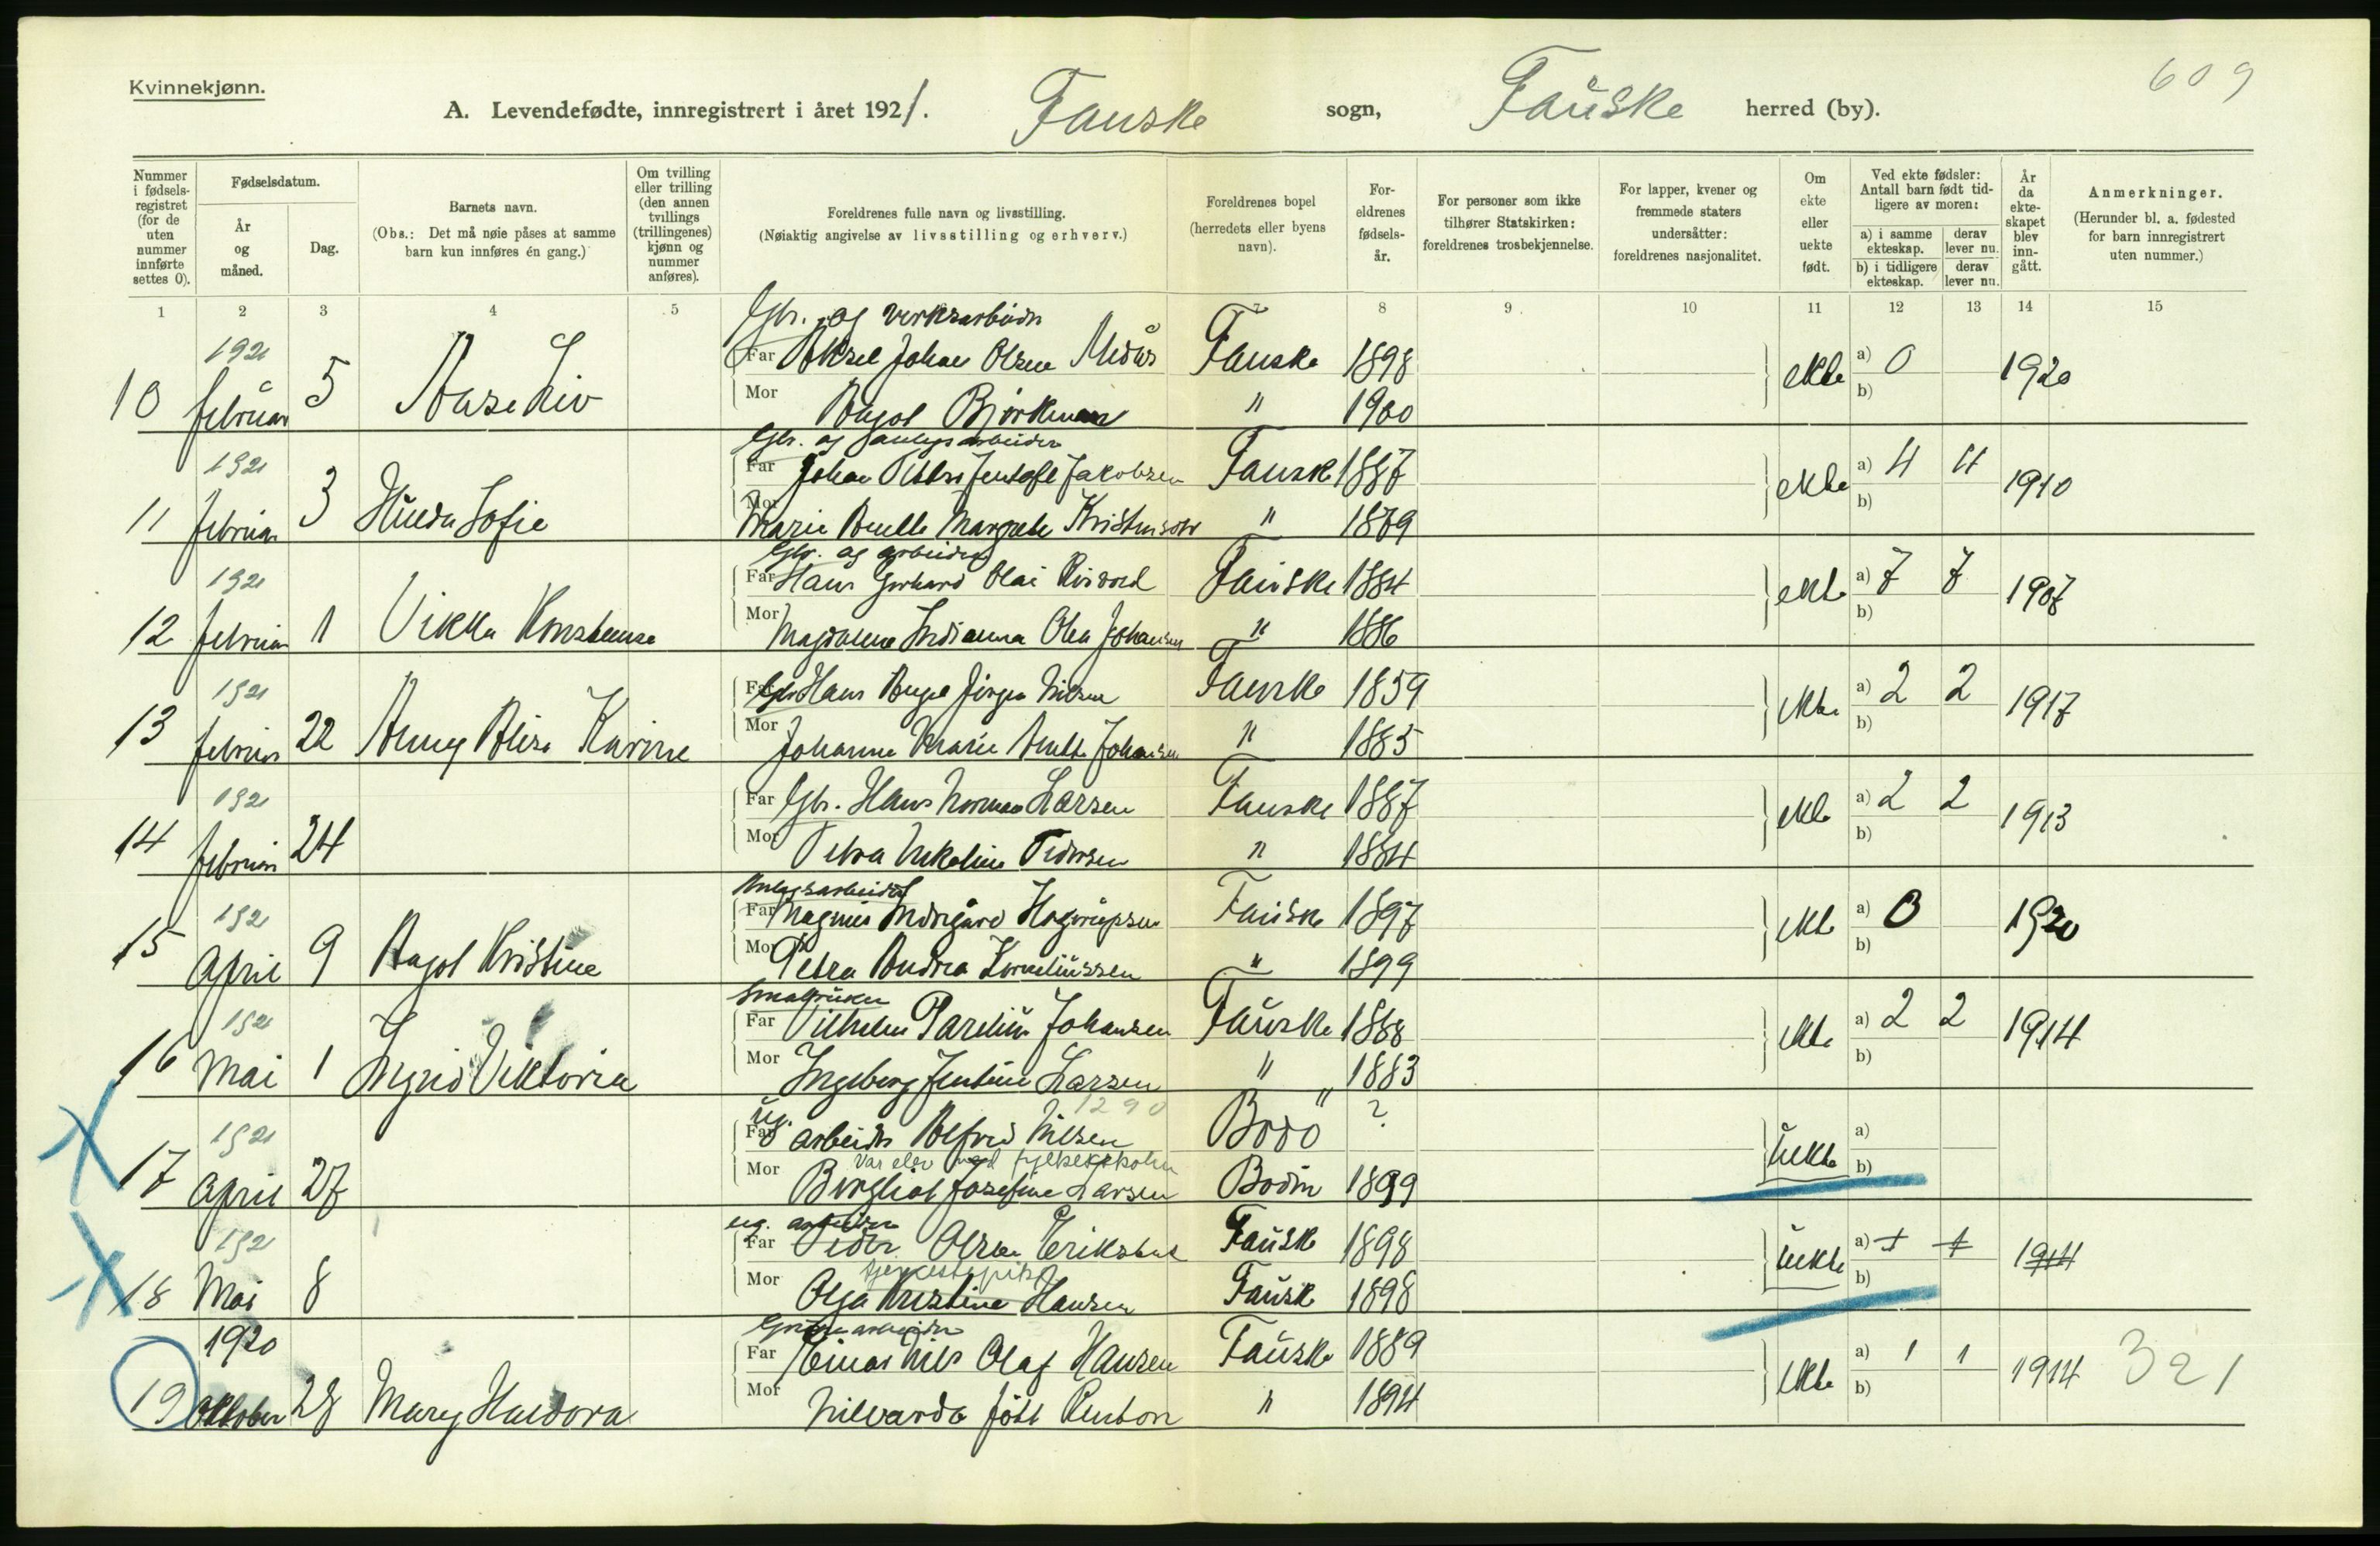 Kvinnekjønn.
609
A. Levendefødte, innregistrert i året 1921. Fauske sogn, Fauske herred (by).
Nummer i fødselsregistret (for de uten nummer innførte settes 0).
Fødselsdatum.
År og måned.
Dag.
Barnets navn.
(Obs.: Det må nøie påses at samme barn kun innføres én gang.)
Om tvilling eller trilling (den annen tvillings (trillingenes) kjønn og nummer anføres).
Foreldrenes fulle navn og livsstilling.
(Nøiaktig angivelse av livsstilling og erhverv.)
Foreldrenes bopel (herredets eller byens navn).
Foreldrenes fødselsår.
For personer som ikke tilhører Statskirken: foreldrenes trosbekjennelse.
For lapper, kvener og fremmede staters undersåtter: foreldrenes nasjonalitet.
Om ekte eller uekte født.
Ved ekte fødsler: Antall barn født tidligere av moren:
a) i samme ekteskap. derav lever nu.
b) i tidligere ekteskap. derav lever nu.
År da ekteskapet blev inngått.
Anmerkninger.
(Herunder bl. a. fødested for barn innregistrert uten nummer.)
1 2 3 4 5 7 8 9 10 11 12 13 14 15
Gbr. og verksarbeider
10 1921 februar 5 Aase Liv Far Aksel Johan Olsen Fauske 1898 ekte a) 0 1920
Mor Bjørkman " 1900 b)
Gbr. og anlegsarbeider
11 1921 februar 3 Hulda Sofie Far Johan Jakobsen Fauske 1887 ekte a) 4 4 1910
Mor Marie Margrete " 1889 b)
Gbr. og arbeider
12 1921 februar 1 Far Hans Gerhard Olai Fauske 1884 ekte a) 7 7 1907
Mor Magdalena Indianna Olea Johansen " 1886 b)
13 1921 februar 22 Anny Alise Karine Far Gbr Hans Jørgen Nilsen Fauske 1859 ekte a) 2 2 1917
Mor Johanna Marie Johansen " 1885 b)
14 1921 februar 24 Far Gbr. Hans Norman Larsen Fauske 1887 ekte a) 2 2 1913
Mor Petra Nikoline Pedersen " 1884 b)
Anlegsarbeider
15 1921 April 9 Kristine Far Magnus Fauske 1897 ekte a) 0 1920
Mor Petra Andrea Korneliussen " 1899 b)
Småbruker
16 1921 Mai 1 Ingrid Viktoria Far Vilhelm Parelius Johansen Fauske 1888 ekte a) 2 2 1914
Mor Ingeborg Jentine Larsen " 1883 b)
1290
17 1921 April 27 ug. Far arbeider Alfred Nilsen Bodø ? uekte a)
Var elev ved fylkesskolen
Mor Bergliot Josefine Larsen Bodin 1899 b)
ug. arbeider
18 1921 Mai 8 Far Peder Olsen Fauske 1898 uekte a) 1 1 1914
tjenestepike
Mor Olga Kristine Hansen Fauske 1898 b)
Grubearbeider
19 1920 Oktober 28 Mary Haldora Far Einar Nils Olaf Hansen Fauske 1889 ekte a) 1 1 1914 321
Mor " 1894 b)